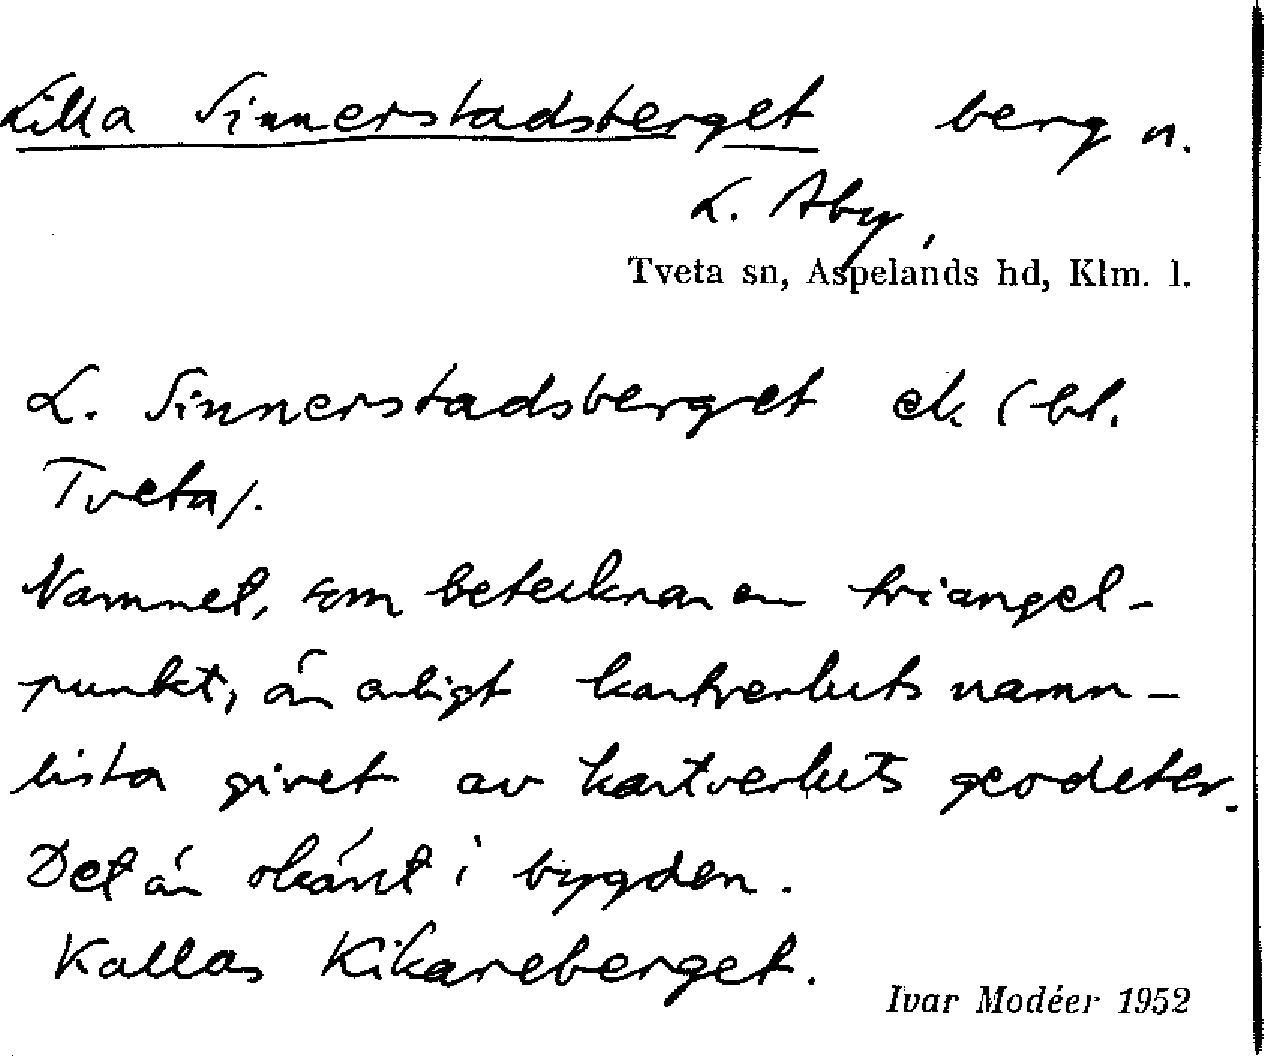 Lilla Sinnerstadsberget berg n.
L. Åby,
Tveta sn, Aspelands hd, Klm. l.
L. Sinnerstadsberget ek (bl.
Tveta).
Namnet, som betecknar en triangel-
punkt, är enligt kartverkets namn-
lista givet av kartverkets geodeter.
Det är okänt i bygden.
Kallas Kikareberget.
Ivar Modéer 1952